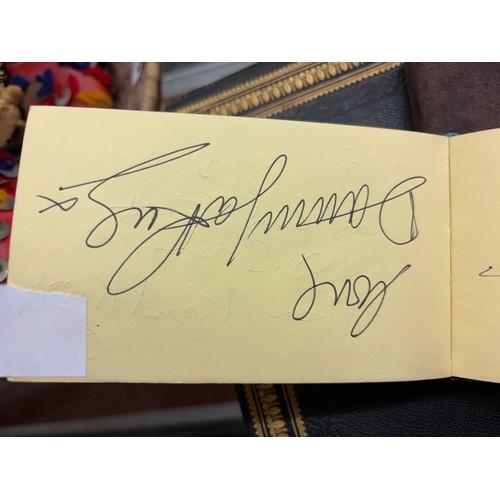 Love
Danny La Rue x